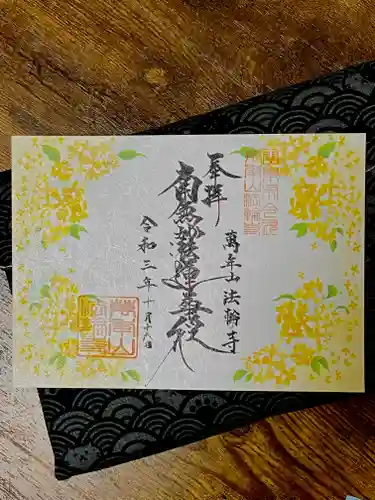 奉拝
萬年山 法輪寺
南無妙法蓮華経
令和三年十月十六日